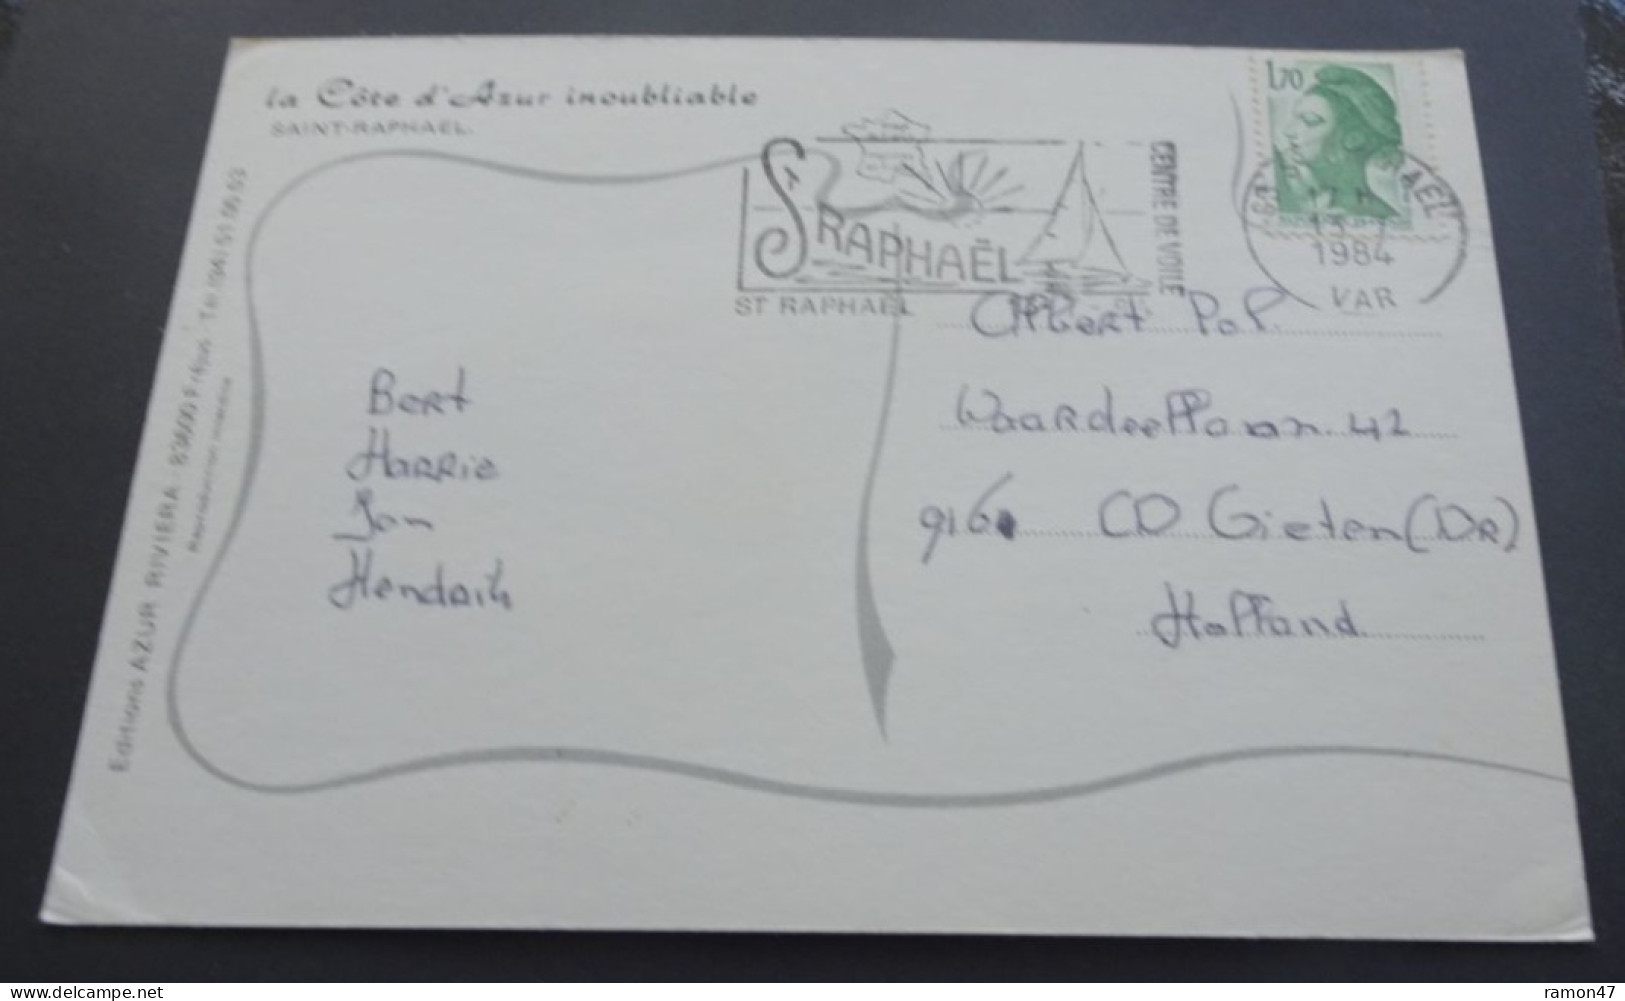 la Côte d'Azur inoubliable
SAINT-RAPHAËL.
ST RAPHAËL
CENTRE DE VOILE
ST RAPHAËL
1,70
1984
VAR
Bert
Harrie
Jan
Hendrik
Albert Pol
Waardeellaan 42
CD Gieten (DR)
Holland
Editions AZUR RIVIERA - 83600 Fréjus - Tél (94) 51 06 63
Reproduction interdite
www.delcampe.net
ramon47